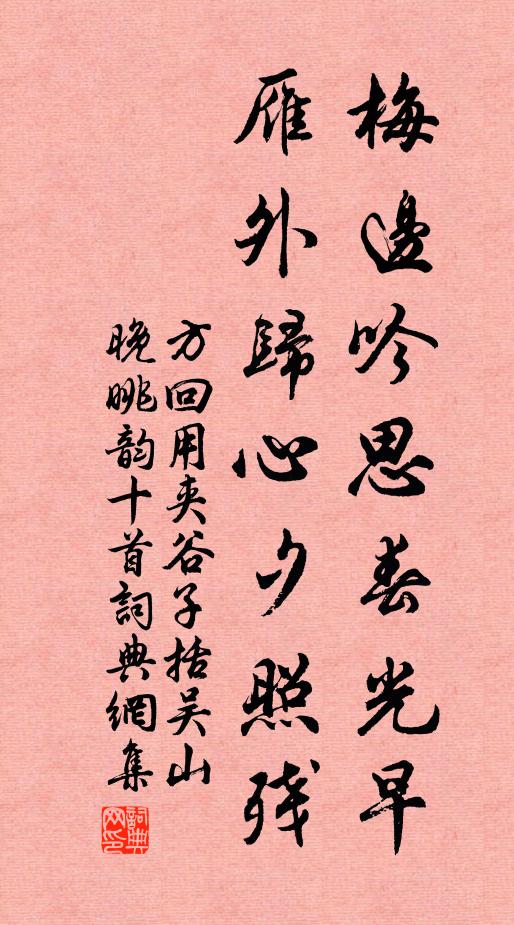 梅邊吟思春光早
雁外歸心夕照残
方回用夾谷子括吴山
晚眺韵十首詞典網集
詞典
网印